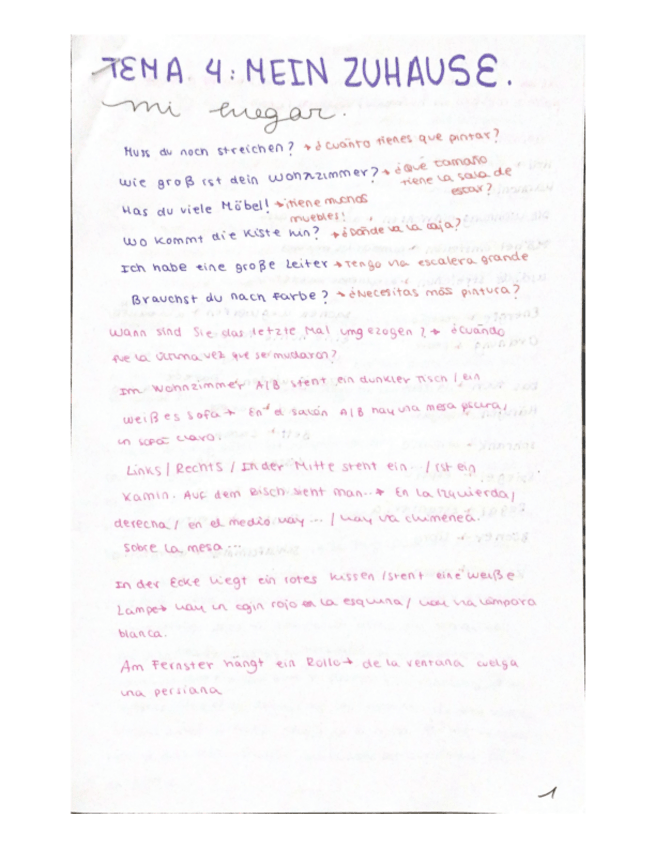 TEMA 4: MEIN ZUHAUSE.
mi hogar.
Muss du noch streichen? → ¿cuánto tienes que pintar?
Wie groß ist dein Wohnzimmer? → ¿Qué tamaño
tiene la sala de
estar?
Has du viele Möbel! → ¡tiene muchos
muebles!
Wo kommt die Kiste hin? → ¿dónde va la caja?
Ich habe eine große Leiter → Tengo una escalera grande
Brauchst du nach Farbe? → ¿Necesitas más pintura?
Wann sind Sie das letzte Mal umgezogen? → ¿cuándo
fue la última vez que se mudaron?
Im Wohnzimmer A/B steht ein dunkler Tisch / ein
weißes Sofa → En el salón A/B hay una mesa oscura,
un sofá claro.
Links / Rechts / In der Mitte steht ein... / ist ein
Kamin. Auf dem Bisch sieht man... → En la izquierda,
derecha / en el medio hay ... / hay una chimenea.
Sobre la mesa ...
In der Ecke liegt ein rotes Kissen / steht eine weiße
Lampe → hay un cojín rojo en la esquina / hay una lámpara
blanca.
Am Fernster hängt ein Rollo → de la ventana cuelga
una persiana
1